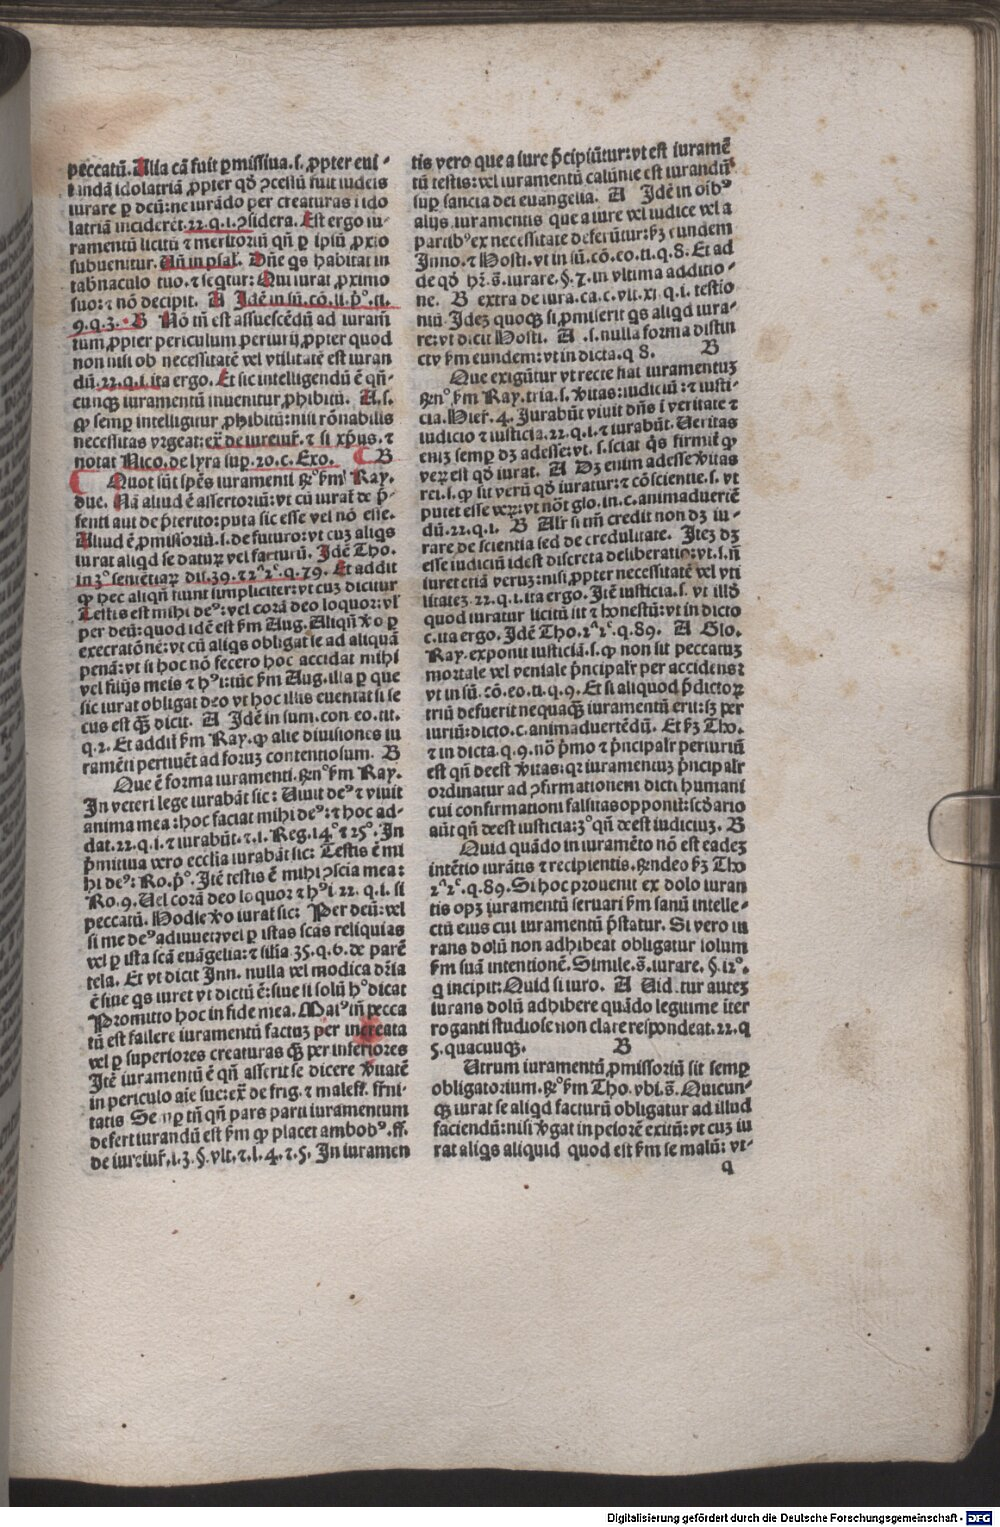 peccatū. Alia cā fuit ꝑmissiua .s. ꝓpter eui-
tandā idolatriā ꝓpter qđ ↄcessū fuit iudeis
iurare ꝑ deū: ne iurādo per creaturas i ido
latriā inciderēt. 22. q. i. ↄsidera. Est ergo iu-
ramentū licitū ⁊ meritoriū qn̄ ꝑ ipsū ꝓxīo
subuenitur. Un̄ in psal. Dn̄e qs habitat in
tab̄naculo tuo. ⁊ seqtur: Qui iurat ꝓximo
suo: ⁊ nō decipit. A Idē in sū. cō. li. p̄º. ti.
9. q. 3. B Nō tn̄ est assuescēdū ad iuram̄
tum ꝓpter periculum periurij ꝓpter quod
non nisi ob necessitatē vel vtilitatē est iuran
dū. 22. q. i. ita ergo. Et sic intelligendū ē qn̄-
cunqꝫ iuramentū inuenitur ꝓhibitū. A .s.
ꝙ semꝑ intelligitur ꝓhibitū: nisi rōnabilis
necessitas vrgeat: ex̄ de iureiur̄. ⁊ si xp̄us. ⁊
notat Nico. de lyra sup. 20. c. Exo. B
Quot sūt sp̄es iuramenti ꝶº ẜm Ray.
due. Nā aliud ē assertoriū: vt cū iurat̄ de p̄-
senti aut de p̄terito: puta sic esse vel nō esse.
Aliud ē ꝓmissoriū .s. de futuro: vt cuꝫ aliqs
iurat aliqd se daturꝝ vel facturū. Idē Tho.
in 3º sententiaꝝ dis. 39. ⁊ 2ª 2ᵉ. q. 79. Et addit
ꝙ hec aliqn̄ fiunt simpliciter: vt cuꝫ dicitur
Testis est mihi deꝰ: vel corā deo loquor: vl̄
per deū: quod idē est ẜm Aug. Aliqn̄ v̄o ꝑ
execratōnē: vt cū aliqs obligat se ad aliquā
penā: vt si hoc nō fecero hoc accidat mihi
vel filijs meis ⁊ hꝰi: tūc ẜm Aug. illa ꝑ que
sic iurat obligat deo vt hoc illis eueniat si se
cus est qꝫ dicit. A Idē in sum. con. eo. tit.
q. 2. Et addit ẜm Ray. ꝙ alie diuisiones iu
ramēti pertinēt ad foruꝫ contentiosum. B
Que ē forma iuramenti. ꝶnº ẜm Ray.
In veteri lege iurabāt sic: Uiuit deꝰ ⁊ viuit
anima mea: hoc faciat mihi deꝰ: ⁊ hoc ad-
dat. 22. q. i. ⁊ iurabūt. ⁊ .i. Reg. 14º ⁊ 25º. In
p̄mitiua vero ecclīa iurabāt sic: Testis ē mi
hi deꝰ: Ro. p̄º. Itē testis ē mihi ↄscia mea:
Ro. 9. Uel corā deo loquor ⁊ hꝰi 22. q. i. si
peccatū. Hodie v̄o iurat sic: Per deū: vel
si me deꝰ adiuuet: vel ꝑ istas scās reliquias
vel ꝑ ista scā euāgelia: ⁊ filia 35. q. 6. de parē
tela. Et vt dicit Inn. nulla vel modica dr̄ia
ē siue qs iuret vt dictū ē: siue si solū hº dicat
Promitto hoc in fide mea. Maiꝰ tn̄ pecca
tū est fallere iuramentū factuꝫ per increata
vel ꝑ superiores creaturas qꝫ per inferiores
Itē iuramentū ē qn̄ asserit se dicere v̄itatē
in periculo aīe sue: ex̄ de frig. ⁊ maleff. fr̄ni-
tatis Semꝑ tn̄ qn̄ pars parti iuramentum
defert iurandū est ẜm ꝙ placet ambobꝰ. ff.
de iureiur̄. l. 3. §. vlt. ⁊ .l. 4. ⁊ .5. In iuramen
tis vero que a iure p̄cipiūtur: vt est iuramē
tū testis: vel iuramentū calūnie est iurandū
suꝑ sancta dei euangelia. A Idē in oībꝰ
alijs iuramentis que a iure vel iudice vel a
partibꝰ ex necessitate deferūtur: ẜꝫ eundem
Inno. ⁊ Hosti. vt in sū. cō. eo. ti. q. 8. Et ad
de qđ hr̄ .s̄. iurare. §. 7. in vltima additio-
ne. B extra de iura. ca. c. vlt. xi. q. i. testio
niū. Ideꝫ quoqꝫ si ꝓmiserit qs aliqd iura-
re: vt dicit Hosti. A .s. nulla forma distin
cta ẜm eundem: vt in dicta. q 8. B
Que exigūtur vt recte fiat iuramentuꝫ
ꝶnº ẜm Ray. tria .s. v̄itas: iudiciū: ⁊ iusti-
cia. Hier̄. 4. Jurabūt viuit dn̄s ī veritate ⁊
iudicio ⁊ iusticia. 22. q. i. ⁊ iurabūt. Ueritas
eniꝫ semꝑ dꝫ adesse: vt .s. sciat qs firmiter ꝙ
verꝝ est qđ iurat. A Dꝫ enim adesse v̄itas
rei .s. ꝙ sit verū qđ iuratur: ⁊ cōscientie .s. vt
putet esse verꝝ: vt nōt glo. in. c. animaduertē
dū. 22. q. i. B Alr̄ si tn̄ credit non dꝫ iu-
rare de scientia sed de credulitate. Iteꝫ dꝫ
esse iudiciū idest discreta deliberatio: vt .s. n̄
iuret etiā veruꝫ: nisi ꝓpter necessitatē vel vti
litateꝫ. 22. q. i. ita ergo. Itē iusticia .s. vt illđ
quod iuratur licitū sit ⁊ honestū: vt in dicto
c. ita ergo. Idē Tho. 2ª 2ᵉ. q. 89. A Glo.
Ray. exponit iusticiā .s. ꝙ non sit peccatuꝫ
mortale vel veniale p̄ncipalr̄ per accidens:
vt in sū. cō. eo. ti. q. 9. Et si aliquod p̄dictoꝝ
triū defuerit nequaqꝫ iuramentū erit: sꝫ per
iuriū: dicto. c. animaduertēdū. Et ẜꝫ Tho.
⁊ in dicta. q. 9. nō p̄mo ⁊ p̄ncipalr̄ periuriū
est qn̄ deest v̄itas: qꝛ iuramentuꝫ p̄ncipalr̄
ordinatur ad ↄfirmationem dicti humani
cui confirmationi falsitas opponit̄: scđario
aūt qn̄ deest iusticia: 3º qn̄ deest iudiciuꝫ. B
Quid quādo in iuramēto nō est eadeꝫ
intētio iurātis ⁊ recipientis. ꝶndeo ẜꝫ Tho
2ª 2ᵉ. q. 89. Si hoc prouenit ex dolo iuran
tis opꝫ iuramentū seruari ẜm sanū intelle-
ctū eius cui iuramentū p̄statur. Si vero iu
rans dolū non adhibeat obligatur solum
ẜm suā intentionē. Simile .s̄. iurare. §. 12º.
q incipit: Quid si iuro. A Uidetur auteꝫ
iurans dolū adhibere quādo legitime īter
roganti studiose non clare respondeat. 22. q
5. quacuūqꝫ. B
Utrum iuramentū ꝓmissoriū sit semꝑ
obligatorium. ꝶº ẜm Tho. vbi .s̄. Quicun-
qꝫ iurat se aliqd facturū obligatur ad illud
faciendū: nisi v̄gat in peiorē exitū: vt cuꝫ iu
rat aliqs aliquid quod est ẜm se malū: vt-
q
Digitalisierung gefördert durch die Deutsche Forschungsgemeinschaft - DFG